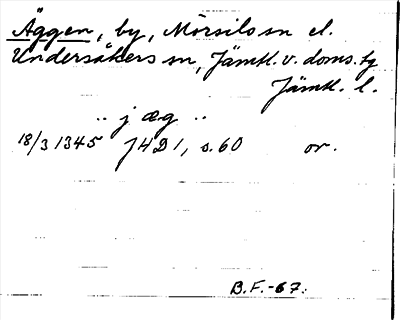 Äggen, by, Mörsils sn el.
Undersåkers sn, Jämtl. v. doms. tg
Jämtl. l.
.. j æg ..
18/3 1345 J421, s. 60 or.
B.F.-67.